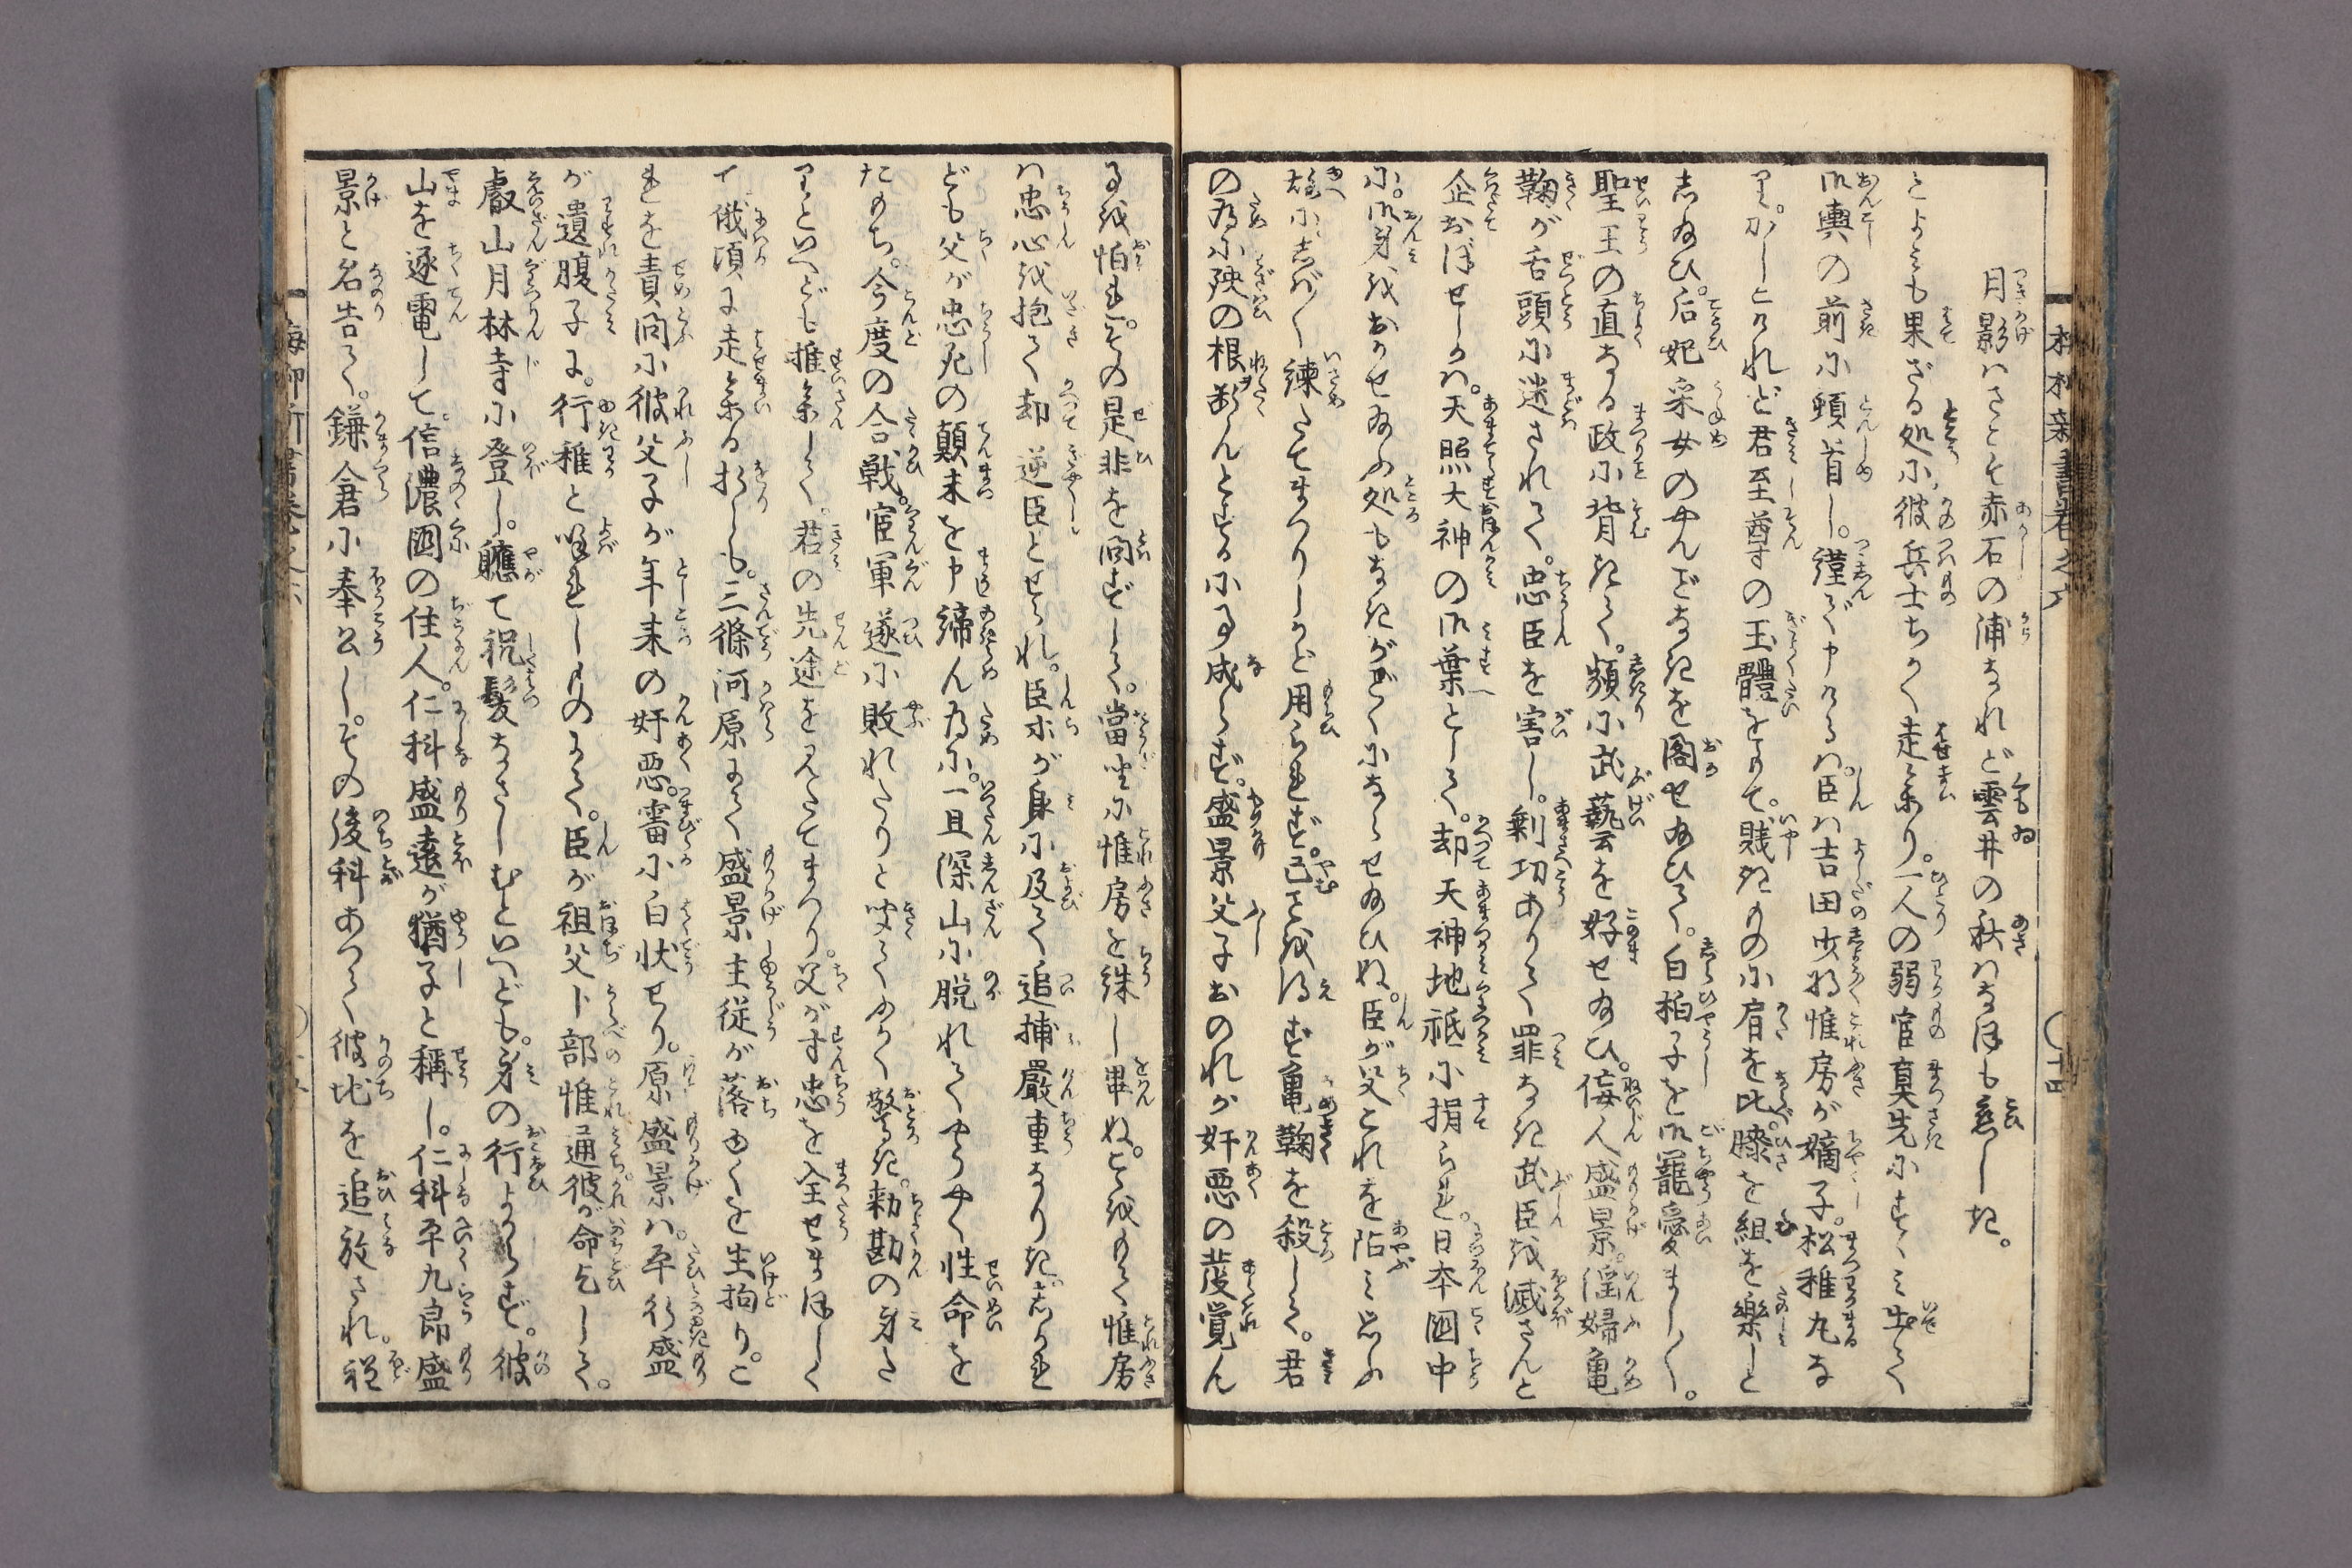 梅柳新書卷之六　〇十四
月影はさこそ赤石の浦なれど雲井の秋はなほも戀しき。
とよみも果ざる処に、彼兵士ちかく走參り。一人の弱官真先にすゝみ出て
御輿の前に頓首し。謹で申けるは。臣は吉田少将惟房が嫡子。松稚丸な
り。かしこけれど君至尊の玉體をもて。賎きものに肩を比。膝を組を樂しと
し給ひ。后妃采女のやんごとなきを閣せ給ひて。白拍子を御寵愛まし〳〵。
聖王の直なる政に背きて。頻に武藝を好せ給ひ。侫人盛景。淫婦亀
鞠が舌頭に迷されて。忠臣を害し。剰功ありて罪なき武臣を滅さんと
企おぼせしかば。天照大神の御葉として。却天神地祇に捐られ。日本國中
に。御身をおかせ給ふ処もなきがごとくにならせ給ひぬ。臣が父これを陥み思ふ
故に。しば〳〵諫たてまつりしかど用られず。已ことを得ず亀鞠を殺して。君
の為に殃の根を断んとするに事成らず。盛景父子おのれが奸悪の發覚ん
るを怕れ。その是非を問ずして。當坐に惟房を誅し畢ぬ。こをもて惟房
は忠心を抱て却逆臣とせられ。臣等が身に及て追捕嚴重なりき。しかれ
ども父が忠死の顛末を申締ん為に。一旦深山に脱れてやうやく性命を
たもち。今度の合戰。官軍遂に敗れたりと聞てふかく驚き。勅勘の身た
りといへども推參して。君の先途を見たてまつり。父が寸忠を全せまほしく
て俄頃に走參る折しも。三條河原にて盛景主従が落ゆくを生拘り。こ
れを責問に彼父子が年来の奸悪。審に白状せり。原盛景は。平行盛
が遺腹子に。行稚と喚れしものにて。臣が祖父卜部惟通彼が命乞して。
叡山月林寺に登し。軈て祝髪なさしむといへども。身の行よからず。彼
山を逐電して。信濃國の住人。仁科盛遠が猶子と稱し。仁科平九郎盛
景と名告て。鎌倉に奉公し。その後科あつて彼地を追放され。程
梅柳新書卷之六